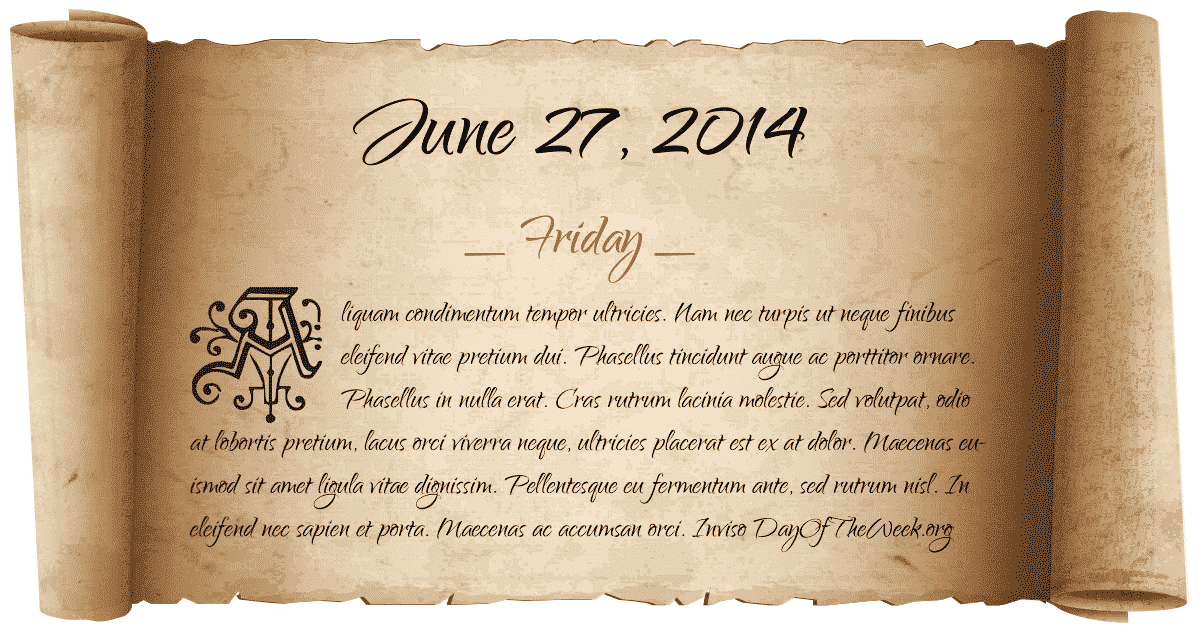 June 27, 2014
_ Friday _
Aliquam condimentum tempor ultricies. Nam nec turpis ut neque finibus
eleifend vitae pretium dui. Phasellus tincidunt augue ac porttitor ornare.
Phasellus in nulla erat. Cras rutrum lacinia molestie. Sed volutpat, odio
at lobortis pretium, lacus orci viverra neque, ultricies placerat est ex at dolor. Maecenas eu-
ismod sit amet ligula vitae dignissim. Pellentesque eu fermentum ante, sed rutrum nisl. In
eleifend nec sapien et porta. Maecenas ac accumsan orci. Inviso DayOfTheWeek.org